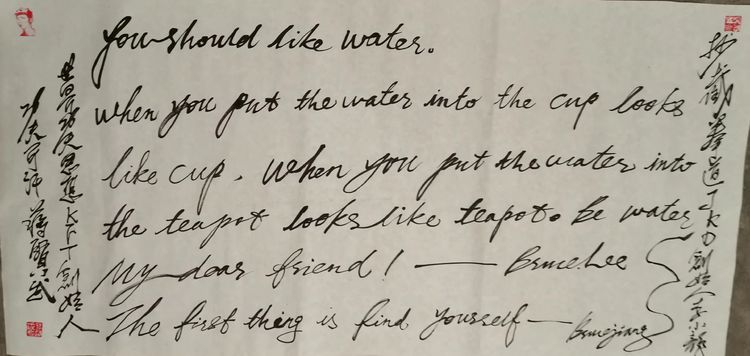 You should like water.
When you put the water into the cup looks
like cup. When you put the water into
the teapot looks like teapot. be water
My dear friend! — BruceLee
The first thing is find yourself — Brucejiang
截拳道JKD創始人李小龍
世界功夫思想KFT創始人
功夫